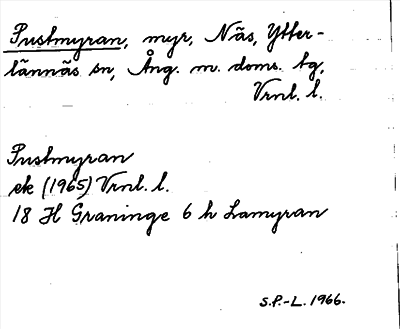 Pustmyran, myr, Näs, Ytter-
lännäs sn, Ång. m. doms. tg,
Vrnl. l.
Pustmyran
ek (1965) Vrnl. l.
18 H Graninge 6 h Lamyran
S.P.-L. 1966.